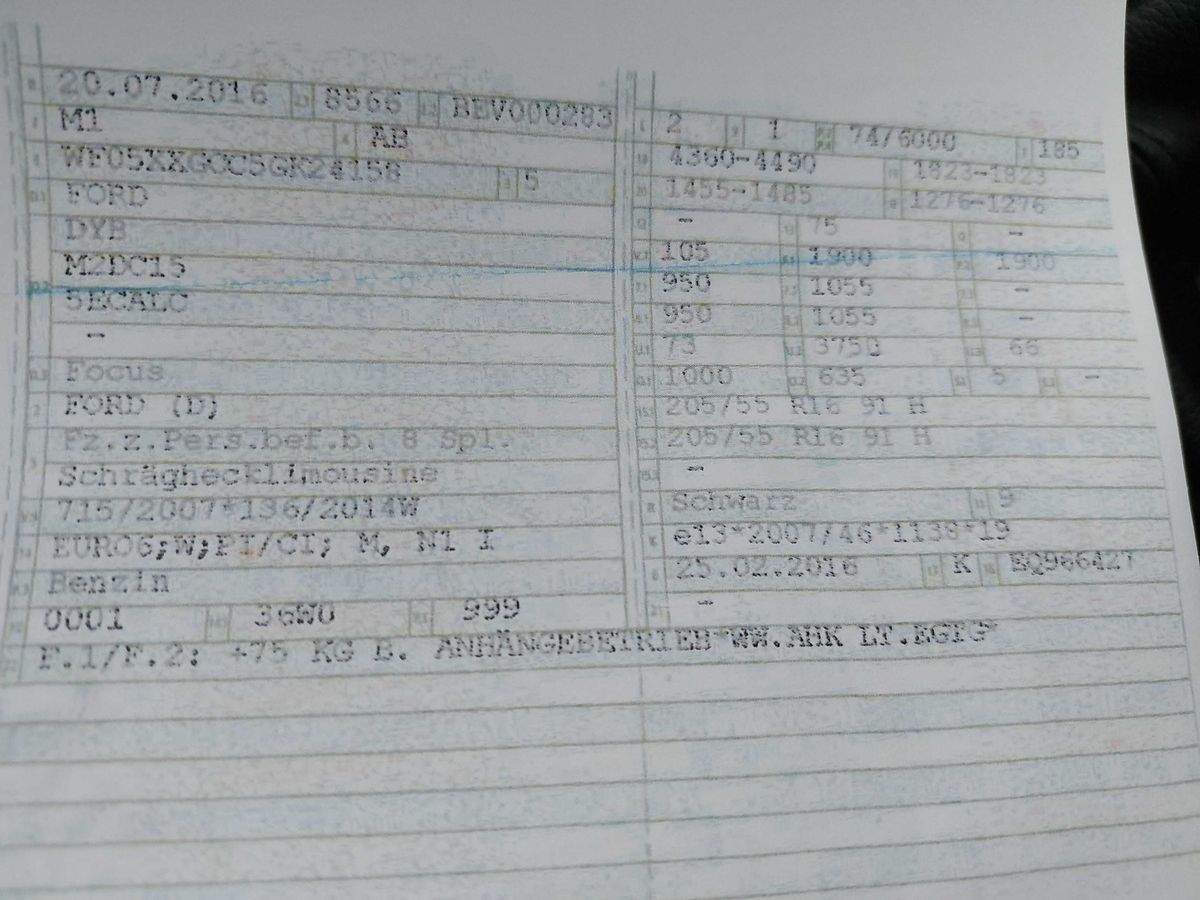 20.07.2016 8566 BEV000283
M1 AB
WF05XXGCC5GK24158 5
FORD
DYB
M2DC15
5ECALC
–
Focus
FORD (D)
Fz.z.Pers.bef.b. 8 Spl.
Schräghecklimousine
715/2007*136/2014W
EURO6;W;PI/CI; M, N1 I
Benzin
0001 36W0 999
F.1/F.2: +75 KG B. ANHÄNGEBETRIEB*WW.AHK LT.EGTG*
2 1 74/6000 185
4360-4490 1823-1823
1455-1485 1276-1276
– 75 –
105 1900 1900
950 1055 –
950 1055 –
73 3750 66
1000 635 5 –
205/55 R16 91 H
205/55 R16 91 H
–
Schwarz 9
e13*2007/46*1138*19
25.02.2016 K EQ966427
–